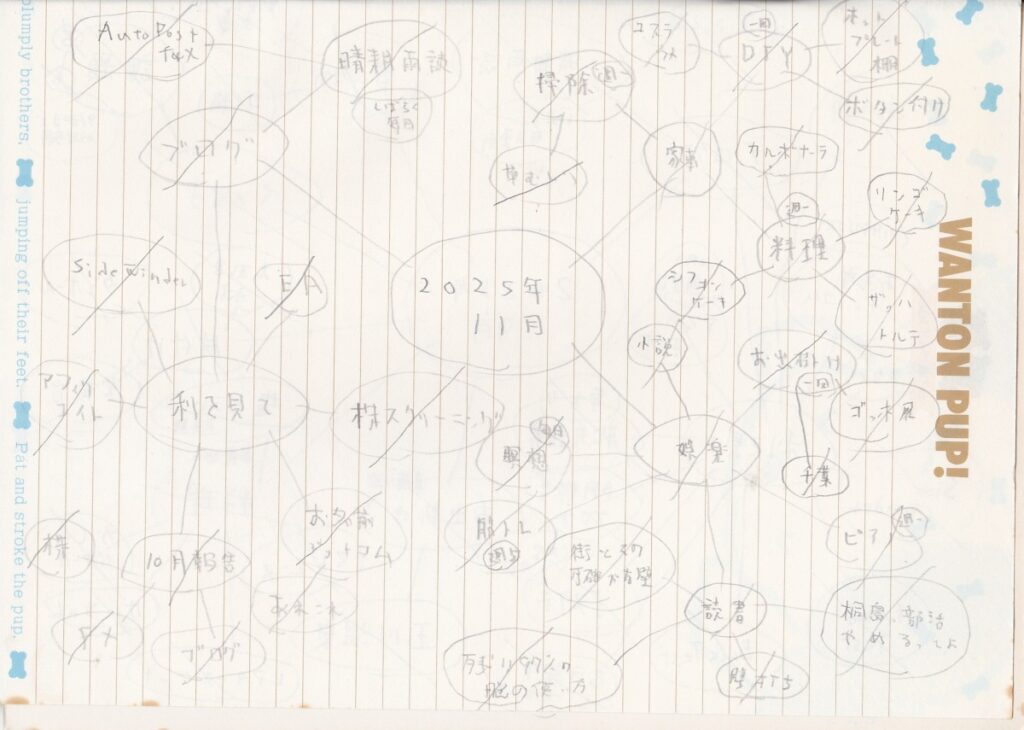 AutoPost
晴耕雨読
しばらく
毎日
ブログ
掃除
週一
草むしり
家事
一回
DIY
ホット
プレート
棚
ボタン付け
カルボナーラ
リンゴ
ケーキ
週一
料理
シフォン
ケーキ
ザッハ
トルテ
2025年
11月
Sidewinder
EA
小説
お出掛け
一回
ゴッホ展
千葉
利を見て
株スクリーニング
毎日
瞑想
娯楽
お名前
ドットコム
筋トレ
週5
街とその
不確かな壁
ピアノ
週一
株
10月報告
あれこれ
読書
桐島、部活
やめるってよ
FX
ブログ
脳の使い方
plumply brothers.
jumping off their feet.
Pat and stroke the pup.
WANTON PUP!